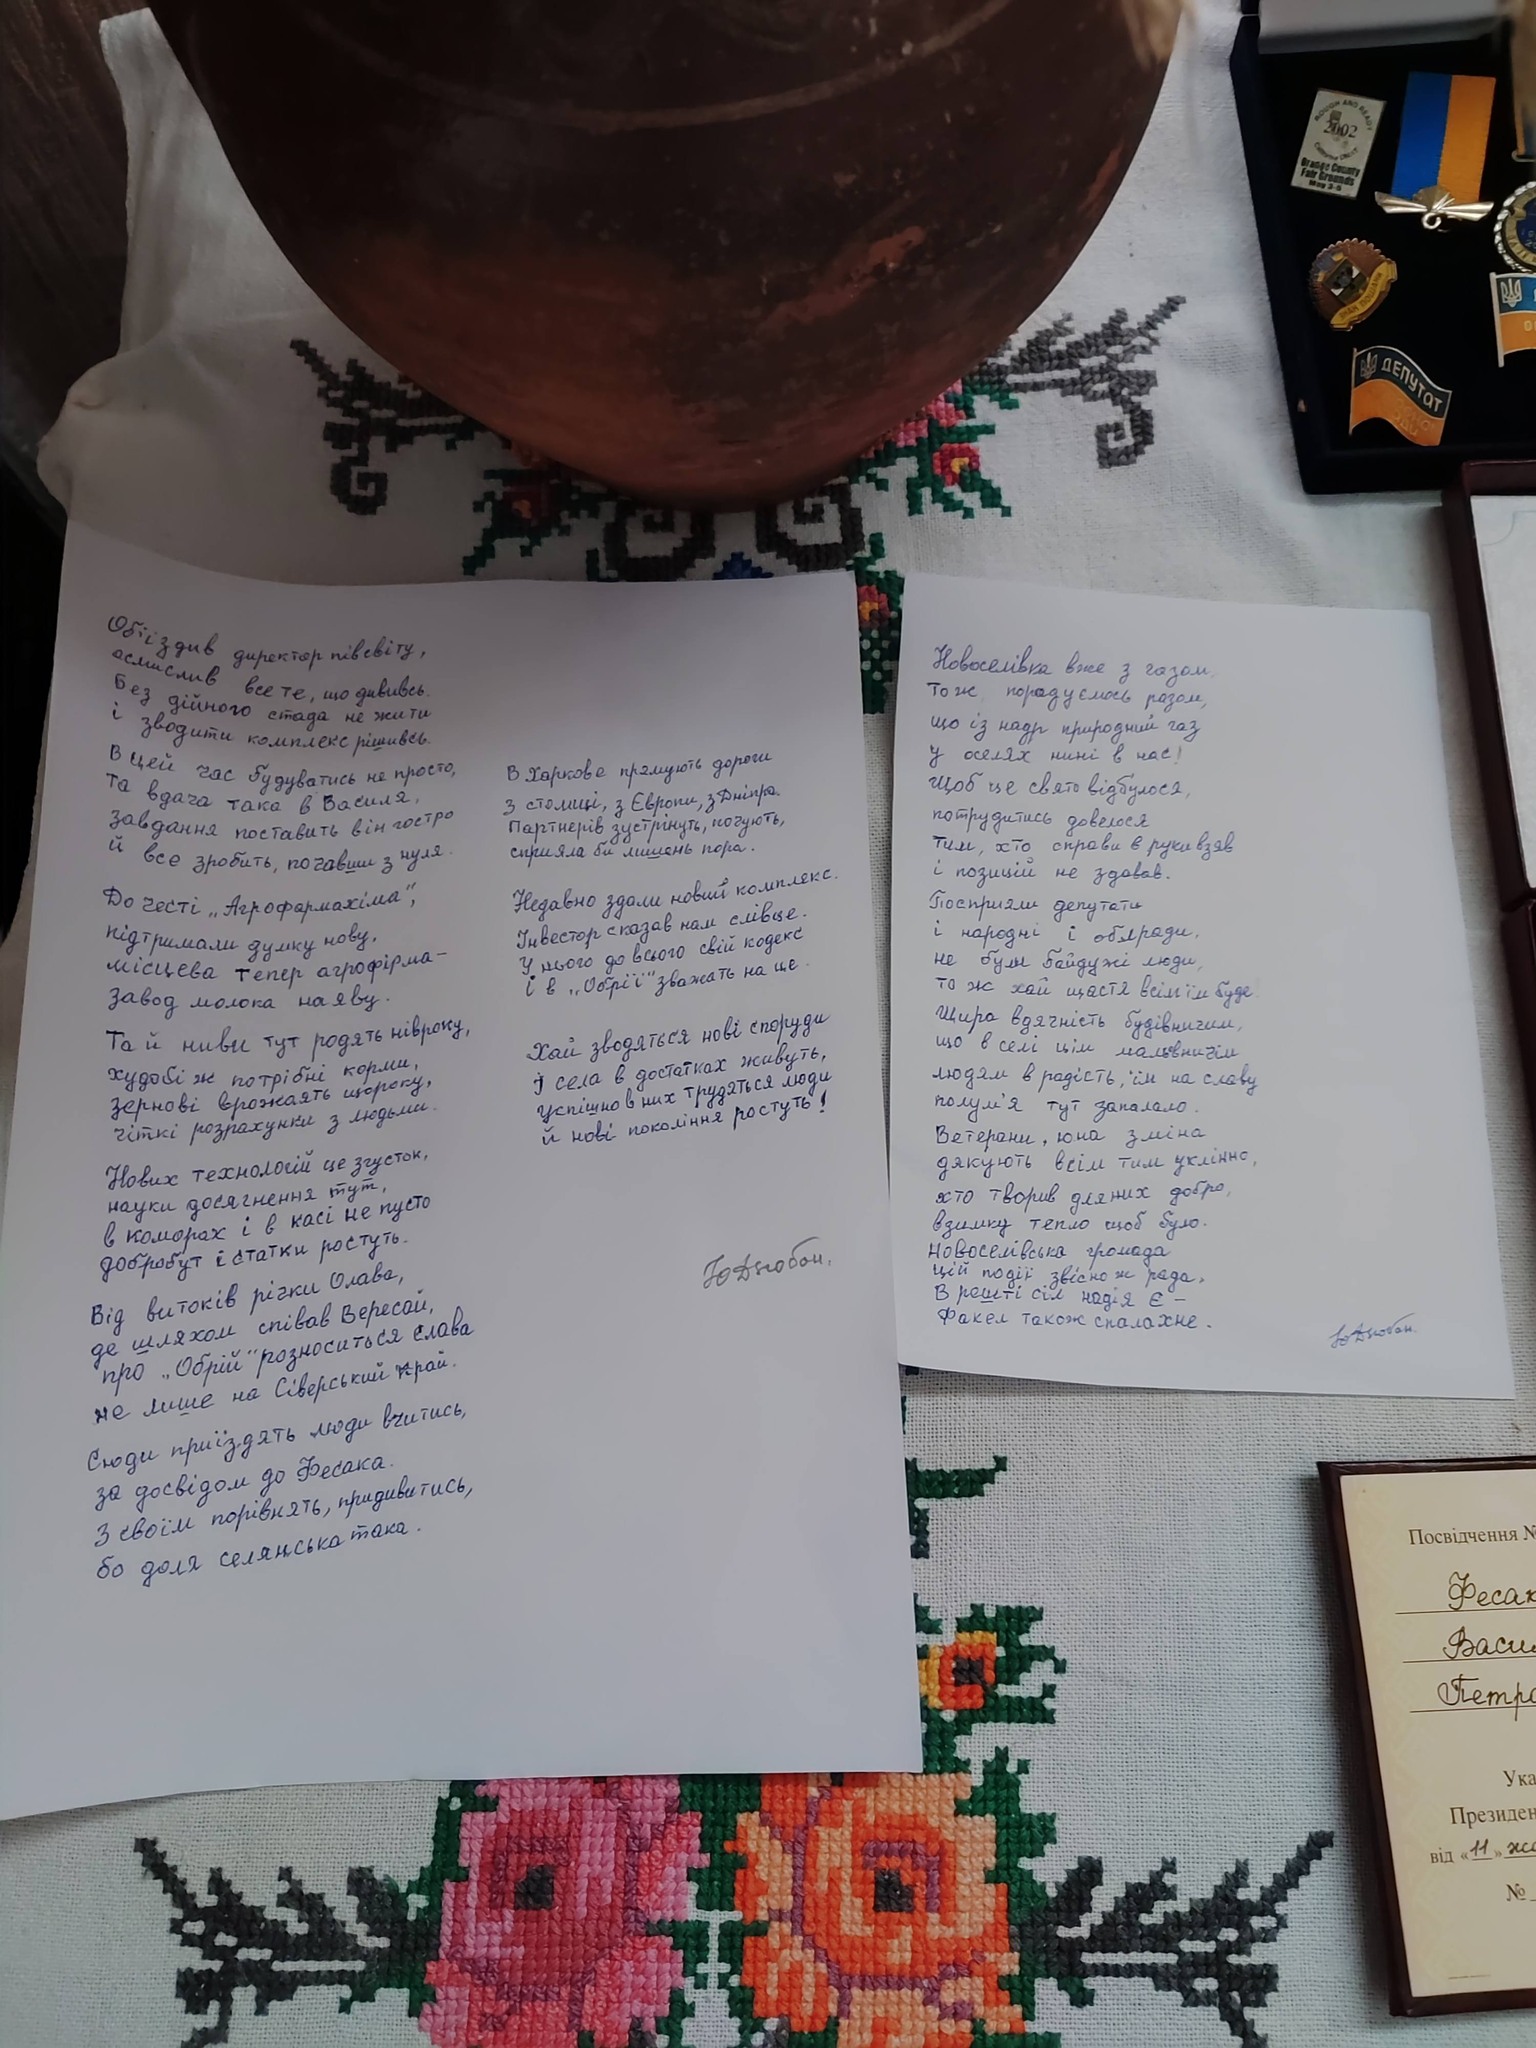 Об'їздив директор півсвіту,
осмислив все те, що дививсь.
Без дійного стада не жити
і зводити комплекс рішивсь.
В цей час будуватись не просто,
та вдача така в Василя,
завдання поставить він гостро
й все зробить, почавши з нуля.
До честі „Агрофармахіма",
підтримали думку нову,
місцева тепер агрофірма –
завод молока наяву.
Та й ниви тут родять нівроку,
худобі ж потрібні корми,
зернові врожаять щороку,
чіткі розрахунки з людьми.
Нових технологій це згусток,
науки досягнення тут,
в коморах і в касі не пусто
добробут і статки ростуть.
Від витоків річки Олава,
де шляхом співав Вересай,
про „Обрій" розноситься слава
не лише на Сіверський край.
Сюди приїздять люди вчитись,
за досвідом до Фесака.
З своїм порівнять, придивитись,
бо доля селянська така.
В Харкове прямують дороги
з столиці, з Європи, з Дніпра.
Партнерів зустрінуть, почують,
сприяла би лишень пора.
Недавно здали новий комплекс.
Інвестор сказав нам слівце.
У нього до всього свій кодекс
і в „Обрії" зважать на це.
Хай зводяться нові споруди
і села в достатках живуть,
успішно в них трудяться люди
й нові покоління ростуть!
Ю Дзюбан.
Новоселівка вже з газом,
тож порадуємось разом,
що із надр природний газ
у оселях нині в нас!
Щоб це свято відбулося,
потрудитись довелося
тим, хто справи в руки взяв
і позицій не здавав.
Посприяли депутати
і народні і облради,
не були байдужі люди,
то ж хай щастя всім їм буде.
Щира вдячність будівничим,
що в селі цім мальвничім
людям в радість, їм на славу
полум'я тут запалало.
Ветерани, юна зміна
дякують всім тим уклінно,
хто творив для них добро,
взимку тепло щоб було.
Новоселівська громада
цій події звісно ж рада,
В решті сіл надія є –
Факел також спалахне.
Ю Дзюбан.
ROUGH AND READY
2002
Orange County
Fair Grounds
May 3-5
ДЕПУТАТ
Посвідчення №
Фесак
Васил
Петро
Ука
Президен
від «11» жо
№